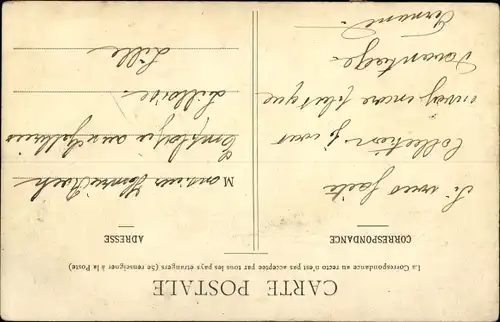 CARTE POSTALE
La Correspondance au recto n'est pas acceptée par tous les pays étrangers (Se renseigner à la Poste)
CORRESPONDANCE
Si vous faite
Collection je vous
envoy encore quelque
Davantage.
Fernand.
ADRESSE
Monsieur Henri
Employé aux Galeries
Lilloises
Lille